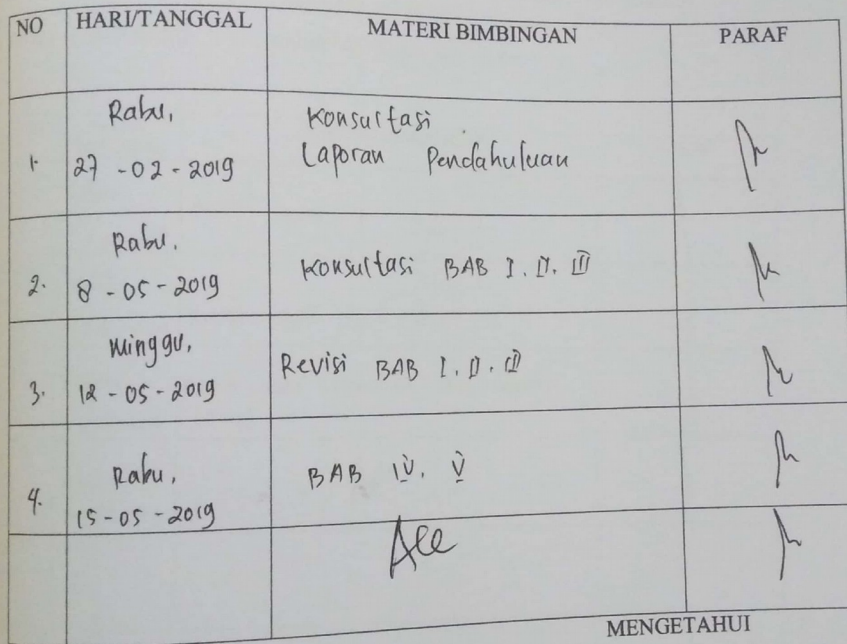 NO HARI/TANGGAL MATERI BIMBINGAN PARAF
Rabu, Konsultasi
1. 27 - 02 - 2019 Laporan Pendahuluan
Rabu,
2. 8 - 05 - 2019 Konsultasi BAB I. II. III
Minggu,
3. 12 - 05 - 2019 Revisi BAB I. II. III
Rabu,
4. 15 - 05 - 2019 BAB IV. V
Acc
MENGETAHUI